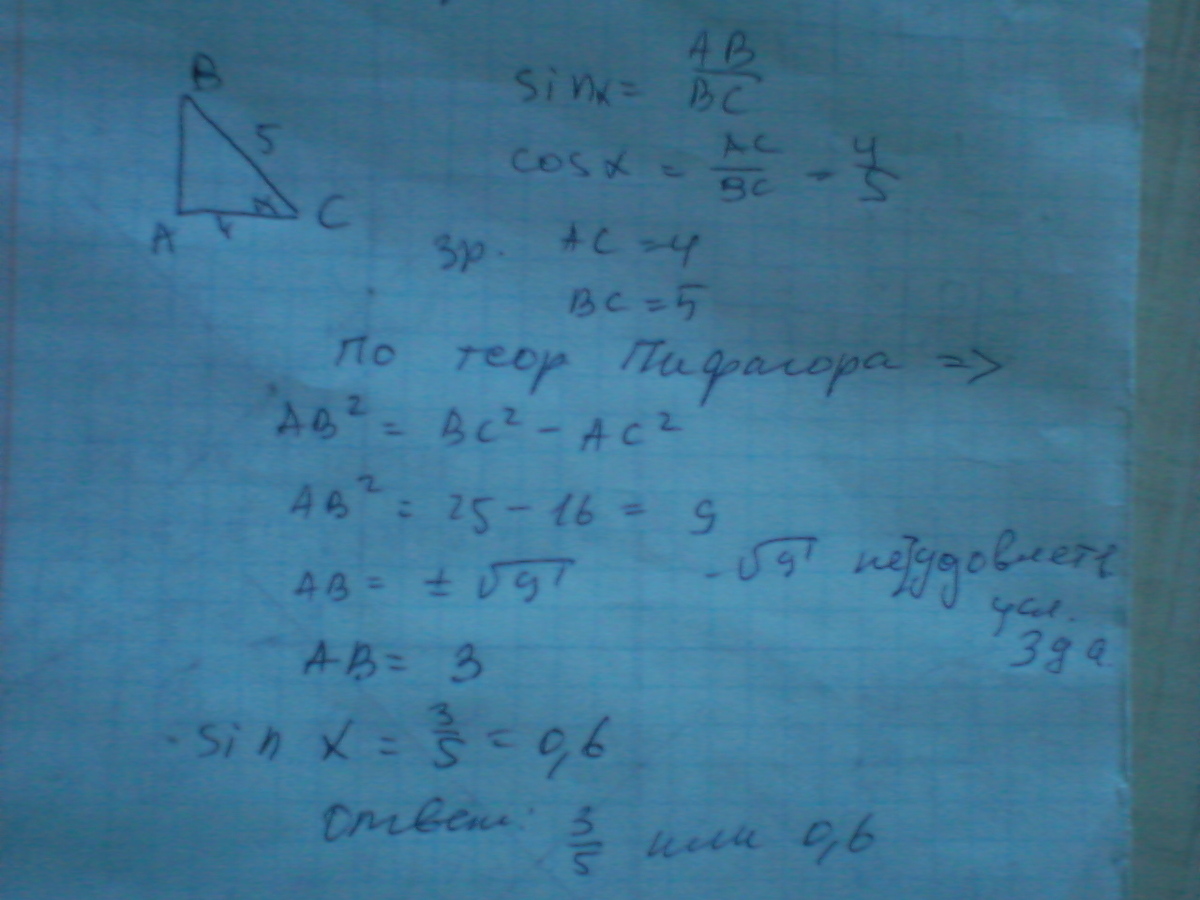 B
5
A 4 x C
sin x = AB/BC
cos x = AC/BC = 4/5
AC = 4
BC = 5
По теор Пифагора =>
AB² = BC² - AC²
AB² = 25 - 16 = 9
AB = ± √9 -√9 не удовлетв
усл.
AB = 3
sin x = 3/5 = 0,6
Ответ: 3/5 или 0,6